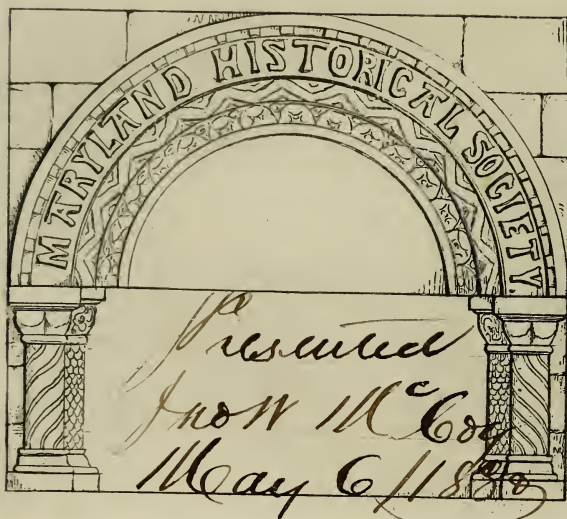 MARYLAND HISTORICAL SOCIETY.
Presented
Jno W McCoy
May 6